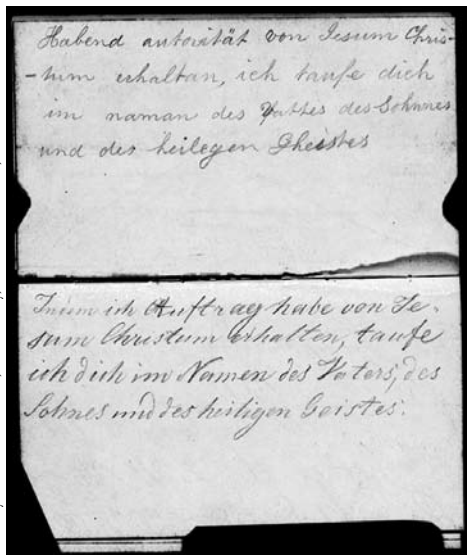 Habend autorität von Jesum Chris-
-tum erhaltan, ich taufe dich
im naman des Vattes des Sohnnes
und des heilegen Gheistes
Indem ich Auftrag habe von Je-
sum Christum erhalten, taufe
ich dich im Namen des Vaters, des
Sohnes und des heiligen Geistes.